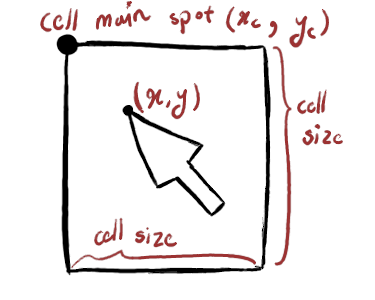 cell main spot (xc, yc)
(x,y)
cell
size
cell size